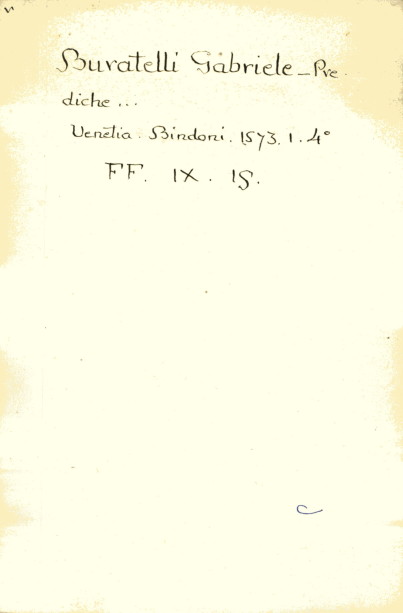 Buratelli Gabriele - Pre
diche ...
Venetia. Bindoni. 1573. 1. 4°
FF. IX. 15.
C